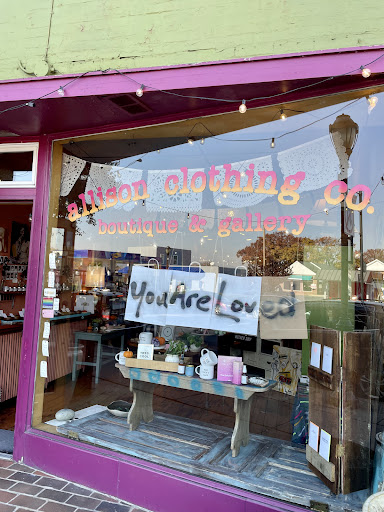 allison clothing co.
boutique & gallery
You Are Loved